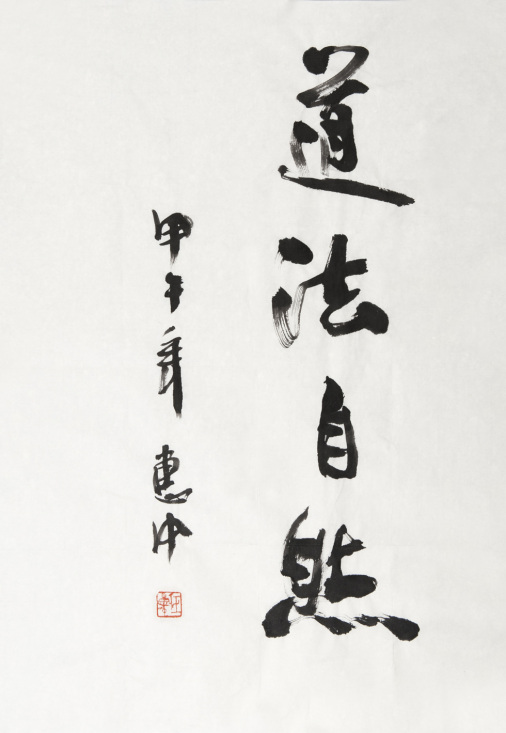 道法自然
甲午年 惠中